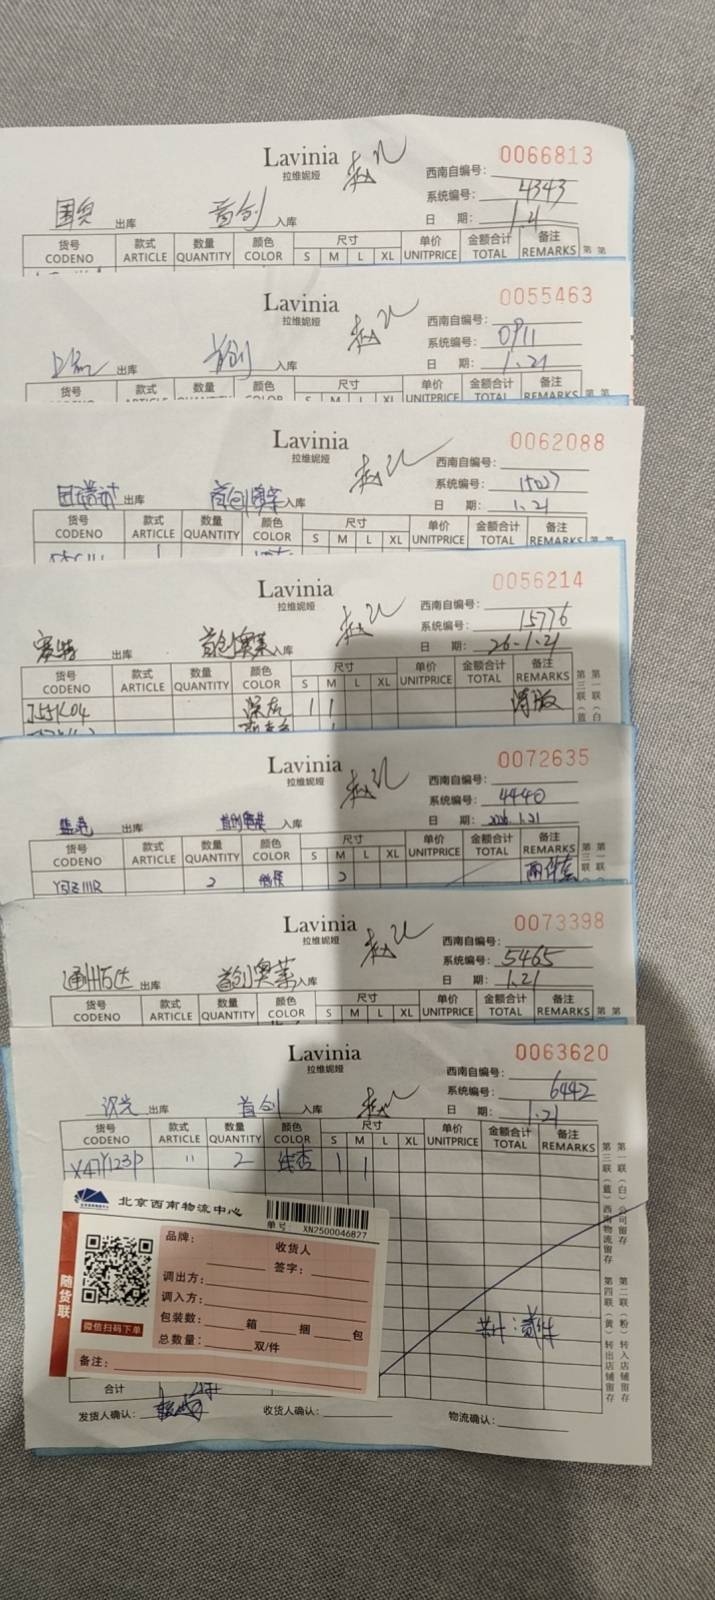 Lavinia 0066813
拉维妮娅 西南自编号:
系统编号: 4343
国奥 出库 首创 入库 日 期: 1.4
货号 款式 数量 颜色 尺寸 单价 金额合计 备注
CODENO ARTICLE QUANTITY COLOR S M L XL UNITPRICE TOTAL REMARKS 第 第
Lavinia 0055463
拉维妮娅 西南自编号:
系统编号: 0911
出库 首创 入库 日 期: 1.21
货号 款式 数量 颜色 尺寸 单价 金额合计 备注
CODENO ARTICLE QUANTITY COLOR S M L XL UNITPRICE TOTAL REMARKS 第 第
Lavinia 0062088
拉维妮娅 西南自编号:
系统编号: 15027
出库 首创奥莱 入库 日 期: 1.21
货号 款式 数量 颜色 尺寸 单价 金额合计 备注
CODENO ARTICLE QUANTITY COLOR S M L XL UNITPRICE TOTAL REMARKS 第 第
Lavinia 0056214
拉维妮娅 西南自编号:
系统编号: 15776
赛特 出库 首创奥莱 入库 日 期: 26-1.21
货号 款式 数量 颜色 尺寸 单价 金额合计 备注
CODENO ARTICLE QUANTITY COLOR S M L XL UNITPRICE TOTAL REMARKS
J55K04 深灰 1 1 薄版
第三联(蓝) 第一联(白)
Lavinia 0072635
拉维妮娅 西南自编号:
系统编号: 4440
蓝岛 出库 首创奥莱 入库 日 期: 2026.1.21
货号 款式 数量 颜色 尺寸 单价 金额合计 备注
CODENO ARTICLE QUANTITY COLOR S M L XL UNITPRICE TOTAL REMARKS
2 2 两件套
第三联( 第一联(
Lavinia 0073398
拉维妮娅 西南自编号:
系统编号: 5465
通州万达 出库 首创奥莱 入库 日 期: 1.21
货号 款式 数量 颜色 尺寸 单价 金额合计 备注
CODENO ARTICLE QUANTITY COLOR S M L XL UNITPRICE TOTAL REMARKS 第 第
Lavinia 0063620
拉维妮娅 西南自编号:
系统编号: 6442
汉光 出库 首创 入库 日 期: 1.21
货号 款式 数量 颜色 尺寸 单价 金额合计 备注
CODENO ARTICLE QUANTITY COLOR S M L XL UNITPRICE TOTAL REMARKS
X47Y123P 11 2 1 1
第一联(白)公司留存
第三联(蓝)西南物流留存
第二联(粉)转入店铺留存
第四联(黄)转出店铺留存
北京西南物流中心
单号: XN2500046827
随货联
微信扫码下单
品牌: 收货人
签字:
调出方:
调入方:
包装数: 箱 捆 包
总数量: 双/件
备注:
共计:贰件
合计
发货人确认: 收货人确认: 物流确认: